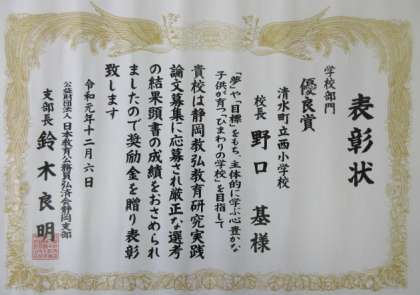 表彰状
学校部門
優良賞
清水町立西小学校
校長 野口 基様
「夢」や「目標」をもち、主体的に学ぶ心豊かな
子供が育つ「ひまわりの学校」を目指して
貴校は静岡教弘教育研究実践
論文募集に応募され厳正な選考
の結果頭書の成績をおさめられ
ましたので奨励金を贈り表彰
致します
令和元年十二月六日
公益財団法人 日本教育公務員弘済会静岡支部
支部長 鈴木良明